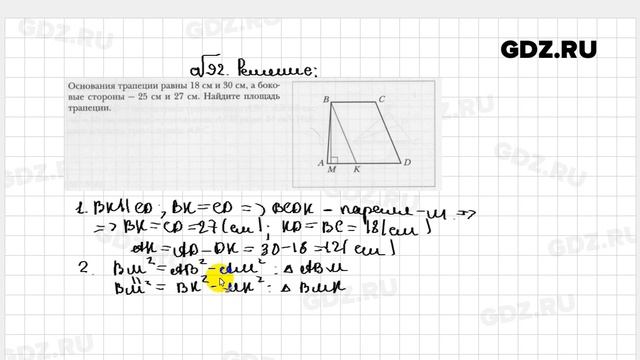 GDZ.RU
№92. Решение:
Основания трапеции равны 18 см и 30 см, а боко-
вые стороны — 25 см и 27 см. Найдите площадь
трапеции.
B C
A M K D
1. BK∥CD, BK=CD => BCDK - паралл-м =>
=> BK=CD=27(см); KD=BC=18(см)
AK=AD-DK=30-18=12(см)
2. BM²=AB²-AM² : △ABM
BM²=BK²-MK² : △BMK